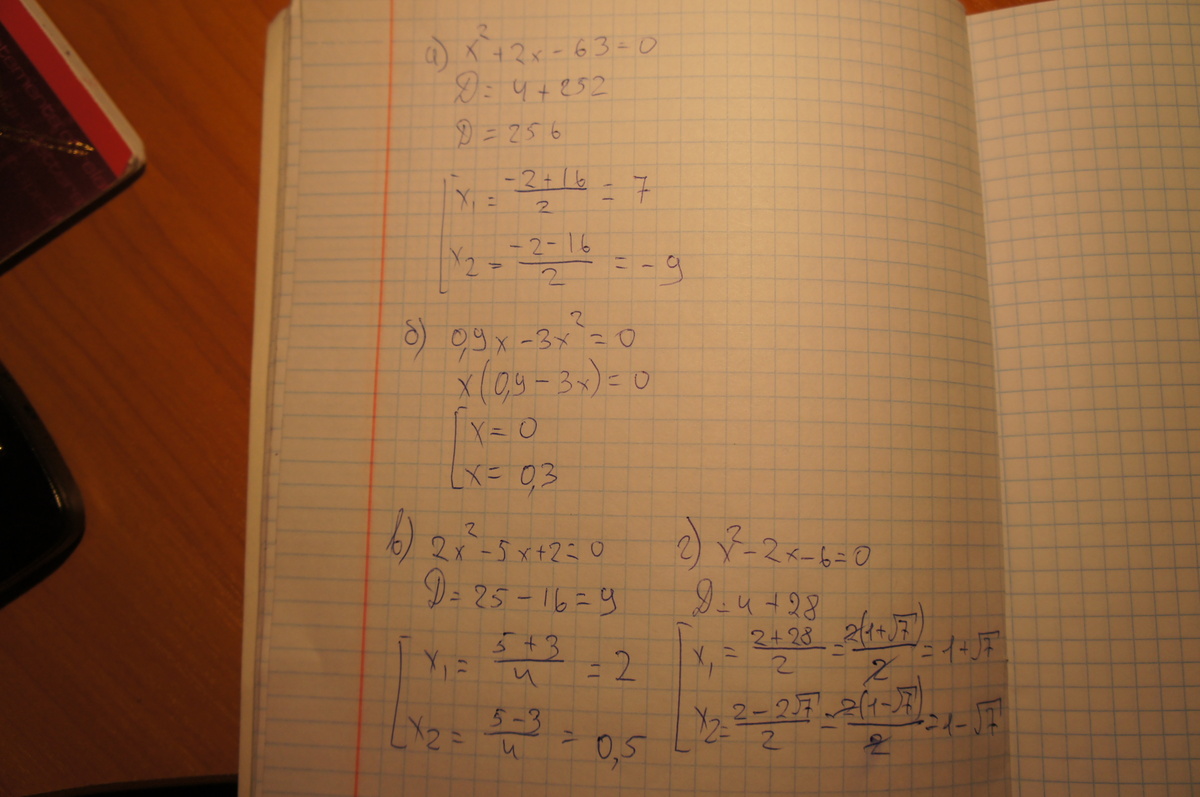 а) x² + 2x - 63 = 0
D = 4 + 252
D = 256
[ x₁ = (-2 + 16)/2 = 7
[ x₂ = (-2 - 16)/2 = -9
б) 0,9x - 3x² = 0
x(0,9 - 3x) = 0
[ x = 0
[ x = 0,3
в) 2x² - 5x + 2 = 0
D = 25 - 16 = 9
[ x₁ = (5 + 3)/4 = 2
[ x₂ = (5 - 3)/4 = 0,5
г) x² - 2x - 6 = 0
D = 4 + 28
[ x₁ = (2 + 28)/2 = 2(1 + √7)/2 = 1 + √7
[ x₂ = (2 - 2√7)/2 = 2(1 - √7)/2 = 1 - √7